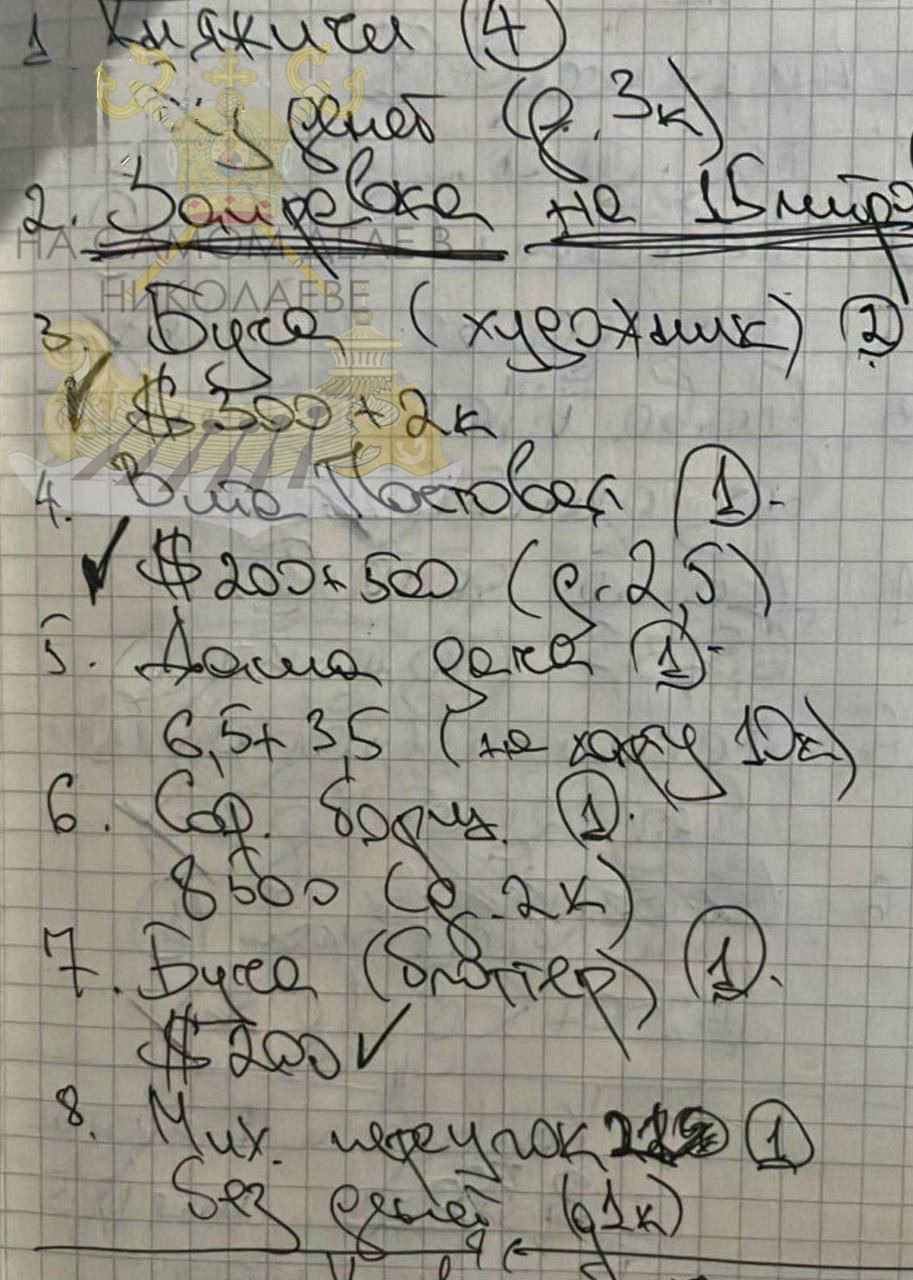 1 Княжичи (4)
Без денег (д. 3к)
2. Заправка на 15 литро
НА САМОМ ДЕЛЕ В
НИКОЛАЕВЕ
3. Буча (художник) (2)
✓ $ 300 + 2к
4. Вита Постовая (1) -
✓ $ 200 + 500 (д. 2,5)
5. Даша дача (1) -
6,5 + 3,5 (на карту 10к)
6. Соф. борщ. (1).
8500 (д. 2к)
7. Буча (блоггер) (1).
$ 200 ✓
8. Мих. переулок (1)
без денег (д 1к)